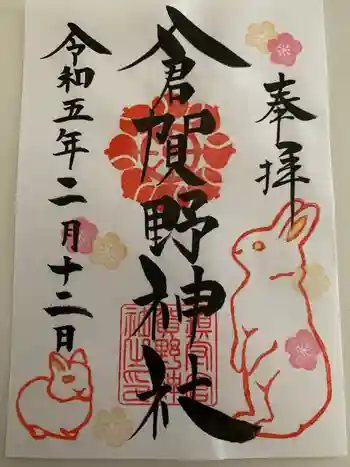 奉拝
倉賀野神社
令和五年二月十二日